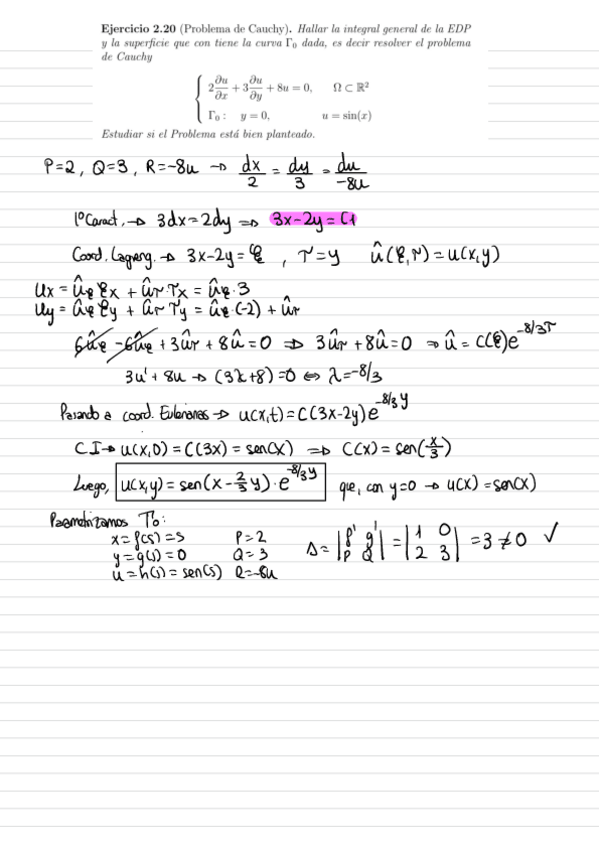 Ejercicio 2.20 (Problema de Cauchy). Hallar la integral general de la EDP
y la superficie que con tiene la curva Γ₀ dada, es decir resolver el problema
de Cauchy
2 ∂u/∂x + 3 ∂u/∂y + 8u = 0, Ω ⊂ ℝ²
Γ₀ : y = 0, u = sin(x)
Estudiar si el Problema está bien planteado.
P=2, Q=3, R=-8u → dx/2 = dy/3 = du/-8u
1º Caract. → 3dx=2dy ⇒ 3x-2y = C1
Coord. Lagrang. → 3x-2y=ξ, τ=y û(ξ,τ)=u(x,y)
ux = ûξ ξx + ûτ τx = ûξ·3
uy = ûξ ξy + ûτ τy = ûξ·(-2) + ûτ
6ûξ - 6ûξ + 3ûτ + 8û = 0 ⇒ 3ûτ + 8û = 0 ⇒ û = C(ξ)e^-8/3τ
3u' + 8u → (3λ+8)=0 ⇔ λ=-8/3
Pasando a coord. Eulerianas → u(x,t)=C(3x-2y)e^-8/3y
CI → u(x,0) = C(3x) = sen(x) ⇒ C(x) = sen(x/3)
Luego, u(x,y) = sen(x-2/3y)·e^-8/3y que, con y=0 → u(x) = sen(x)
Parametrizamos Γ0:
x = f(s) = s P=2
y = g(s) = 0 Q=3
u = h(s) = sen(s) R=-8u
Δ = |f' g'; P Q| = |1 0; 2 3| = 3 ≠ 0 ✓